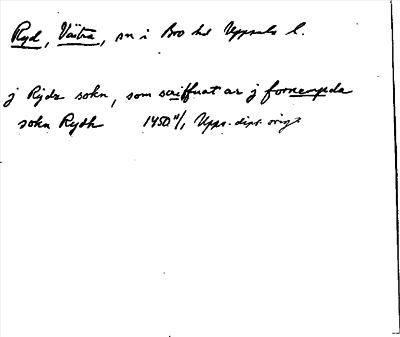 Ryd, Västra, sn i Bro hd Uppsala l.
j Rydz sokn, som scriffuat ar j fornempda
sokn Rydh 1450 11/1 Upps. dipl. orig.